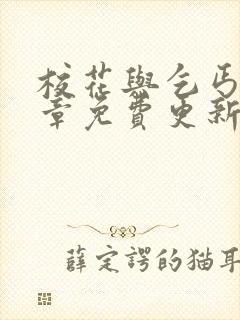 校花與乞丐
章免費更新
薛定諤的猫耳